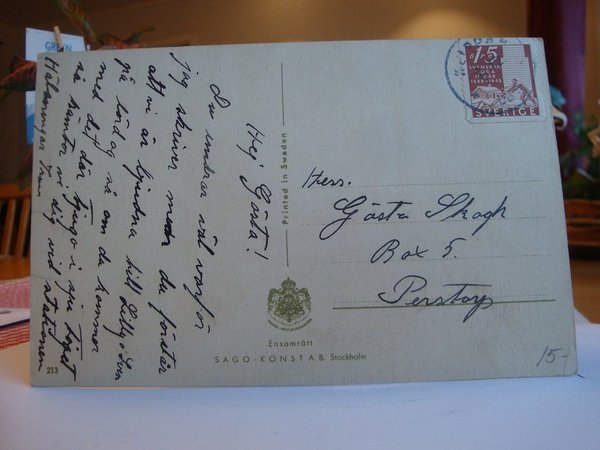 Hej Gösta!
Du undrar väl varför
jag skriver men du förstår
att vi är bjudna till Lilly o Sven
på lörd ag så om du kommer
med det där tjugo i sju tåget
så hämtar vi dig vid stationen
Hälsningar
Printed in Sweden
Herr.
Gösta Skogh
Box 5.
Perstorp
15
SVENSKAR
USA
1848-1948
SVERIGE
Ensamrätt
SAGO-KONST A.B. Stockholm
213
15-
GREEN